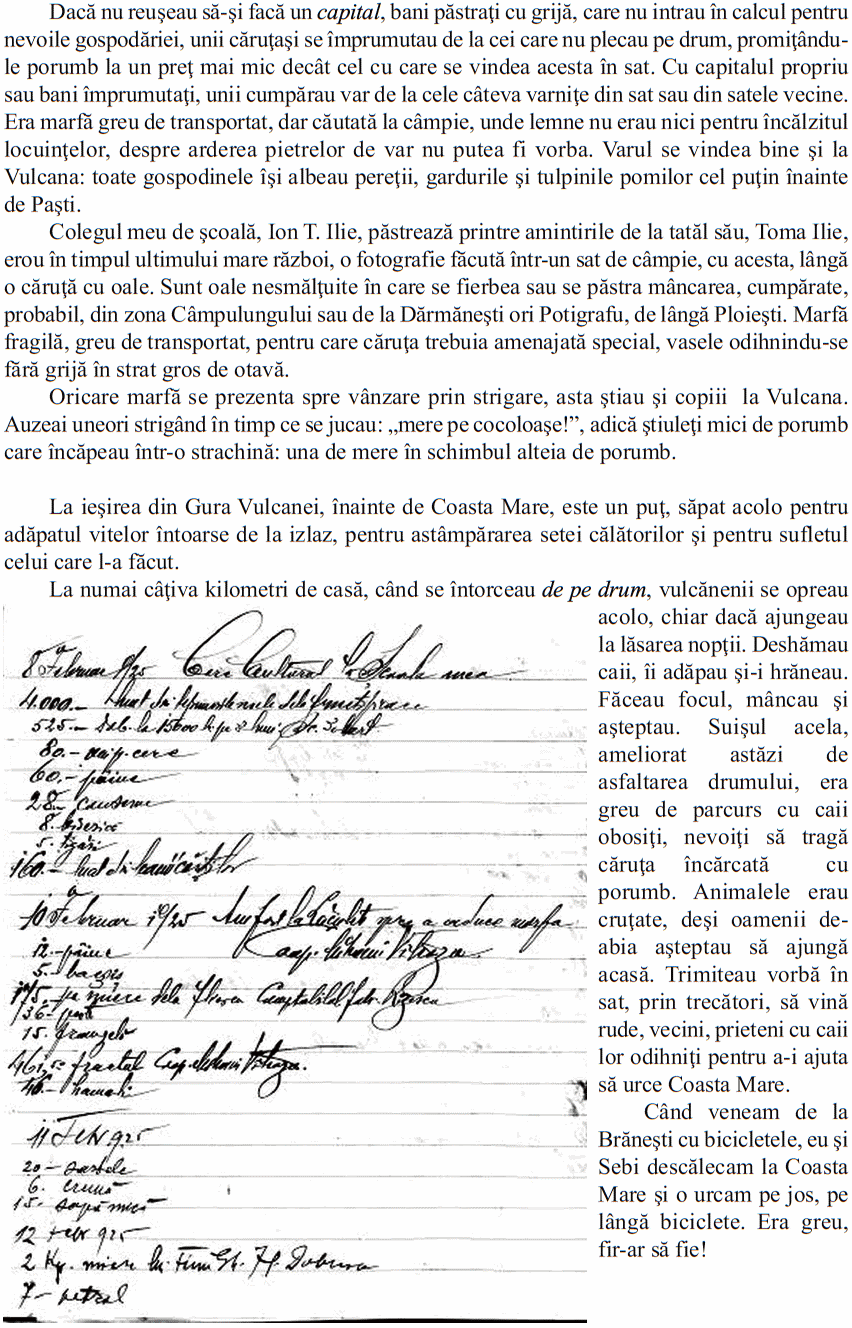 Dacă nu reuşeau să-şi facă un capital, bani păstraţi cu grijă, care nu intrau în calcul pentru
nevoile gospodăriei, unii căruţaşi se împrumutau de la cei care nu plecau pe drum, promiţându-
le porumb la un preţ mai mic decât cel cu care se vindea acesta în sat. Cu capitalul propriu
sau bani împrumutaţi, unii cumpărau var de la cele câteva varniţe din sat sau din satele vecine.
Era marfă greu de transportat, dar căutată la câmpie, unde lemne nu erau nici pentru încălzitul
locuinţelor, despre arderea pietrelor de var nu putea fi vorba. Varul se vindea bine şi la
Vulcana: toate gospodinele îşi albeau pereţii, gardurile şi tulpinile pomilor cel puţin înainte
de Paşti.
Colegul meu de şcoală, Ion T. Ilie, păstrează printre amintirile de la tatăl său, Toma Ilie,
erou în timpul ultimului mare război, o fotografie făcută într-un sat de câmpie, cu acesta, lângă
o căruţă cu oale. Sunt oale nesmălţuite în care se fierbea sau se păstra mâncarea, cumpărate,
probabil, din zona Câmpulungului sau de la Dărmăneşti ori Potigrafu, de lângă Ploieşti. Marfă
fragilă, greu de transportat, pentru care căruţa trebuia amenajată special, vasele odihnindu-se
fără grijă în strat gros de otavă.
Oricare marfă se prezenta spre vânzare prin strigare, asta ştiau şi copiii la Vulcana.
Auzeai uneori strigând în timp ce se jucau: „mere pe cocoloaşe!”, adică ştiuleţi mici de porumb
care încăpeau într-o strachină: una de mere în schimbul alteia de porumb.
La ieşirea din Gura Vulcanei, înainte de Coasta Mare, este un puţ, săpat acolo pentru
adăpatul vitelor întoarse de la izlaz, pentru astâmpărarea setei călătorilor şi pentru sufletul
celui care l-a făcut.
La numai câţiva kilometri de casă, când se întorceau de pe drum, vulcănenii se opreau
acolo, chiar dacă ajungeau
la lăsarea nopţii. Deshămau
caii, îi adăpau şi-i hrăneau.
Făceau focul, mâncau şi
aşteptau. Suişul acela,
ameliorat astăzi de
asfaltarea drumului, era
greu de parcurs cu caii
obosiţi, nevoiţi să tragă
căruţa încărcată cu
porumb. Animalele erau
cruţate, deşi oamenii de-
abia aşteptau să ajungă
acasă. Trimiteau vorbă în
sat, prin trecători, să vină
rude, vecini, prieteni cu caii
lor odihniţi pentru a-i ajuta
să urce Coasta Mare.
Când veneam de la
Brăneşti cu bicicletele, eu şi
Sebi descălecam la Coasta
Mare şi o urcam pe jos, pe
lângă biciclete. Era greu,
fir-ar să fie!
8 Februar 925 Cultural la Scoala mea
4.000.- luat din
525.-
80.-
60.- pâine
28.-
8. biserică
5. ţigări
160.- luat din
10 Februar 1925 Am fost la
12.- pâine
5.-
175.- miere dela
136.-
15.
461,5
46.- hamali
11 Febr 925
20-
6.
15.
12 Febr 925
2 Kg. miere lui
7 - petrol